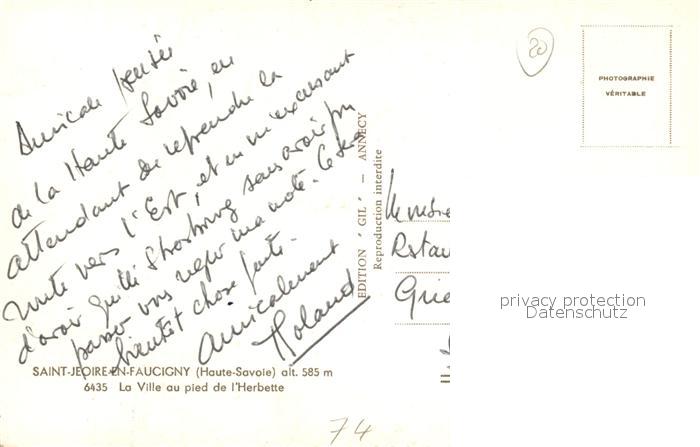 Amicale pensée
de la Haute Savoie, en
attendant de reprendre la
route vers l'Est, et en m'excusant
d'avoir quitté Strasbourg sans avoir pu
passer vous régler ma note. Ce sera
bientôt chose faite.
Amicalement
Roland
SAINT-JEOIRE-EN-FAUCIGNY (Haute-Savoie) alt. 585 m
6435 La Ville au pied de l'Herbette
EDITION "GIL" - ANNECY
Reproduction interdite
20
PHOTOGRAPHIE
VÉRITABLE
Restau
Grie
privacy protection
Datenschutz
74